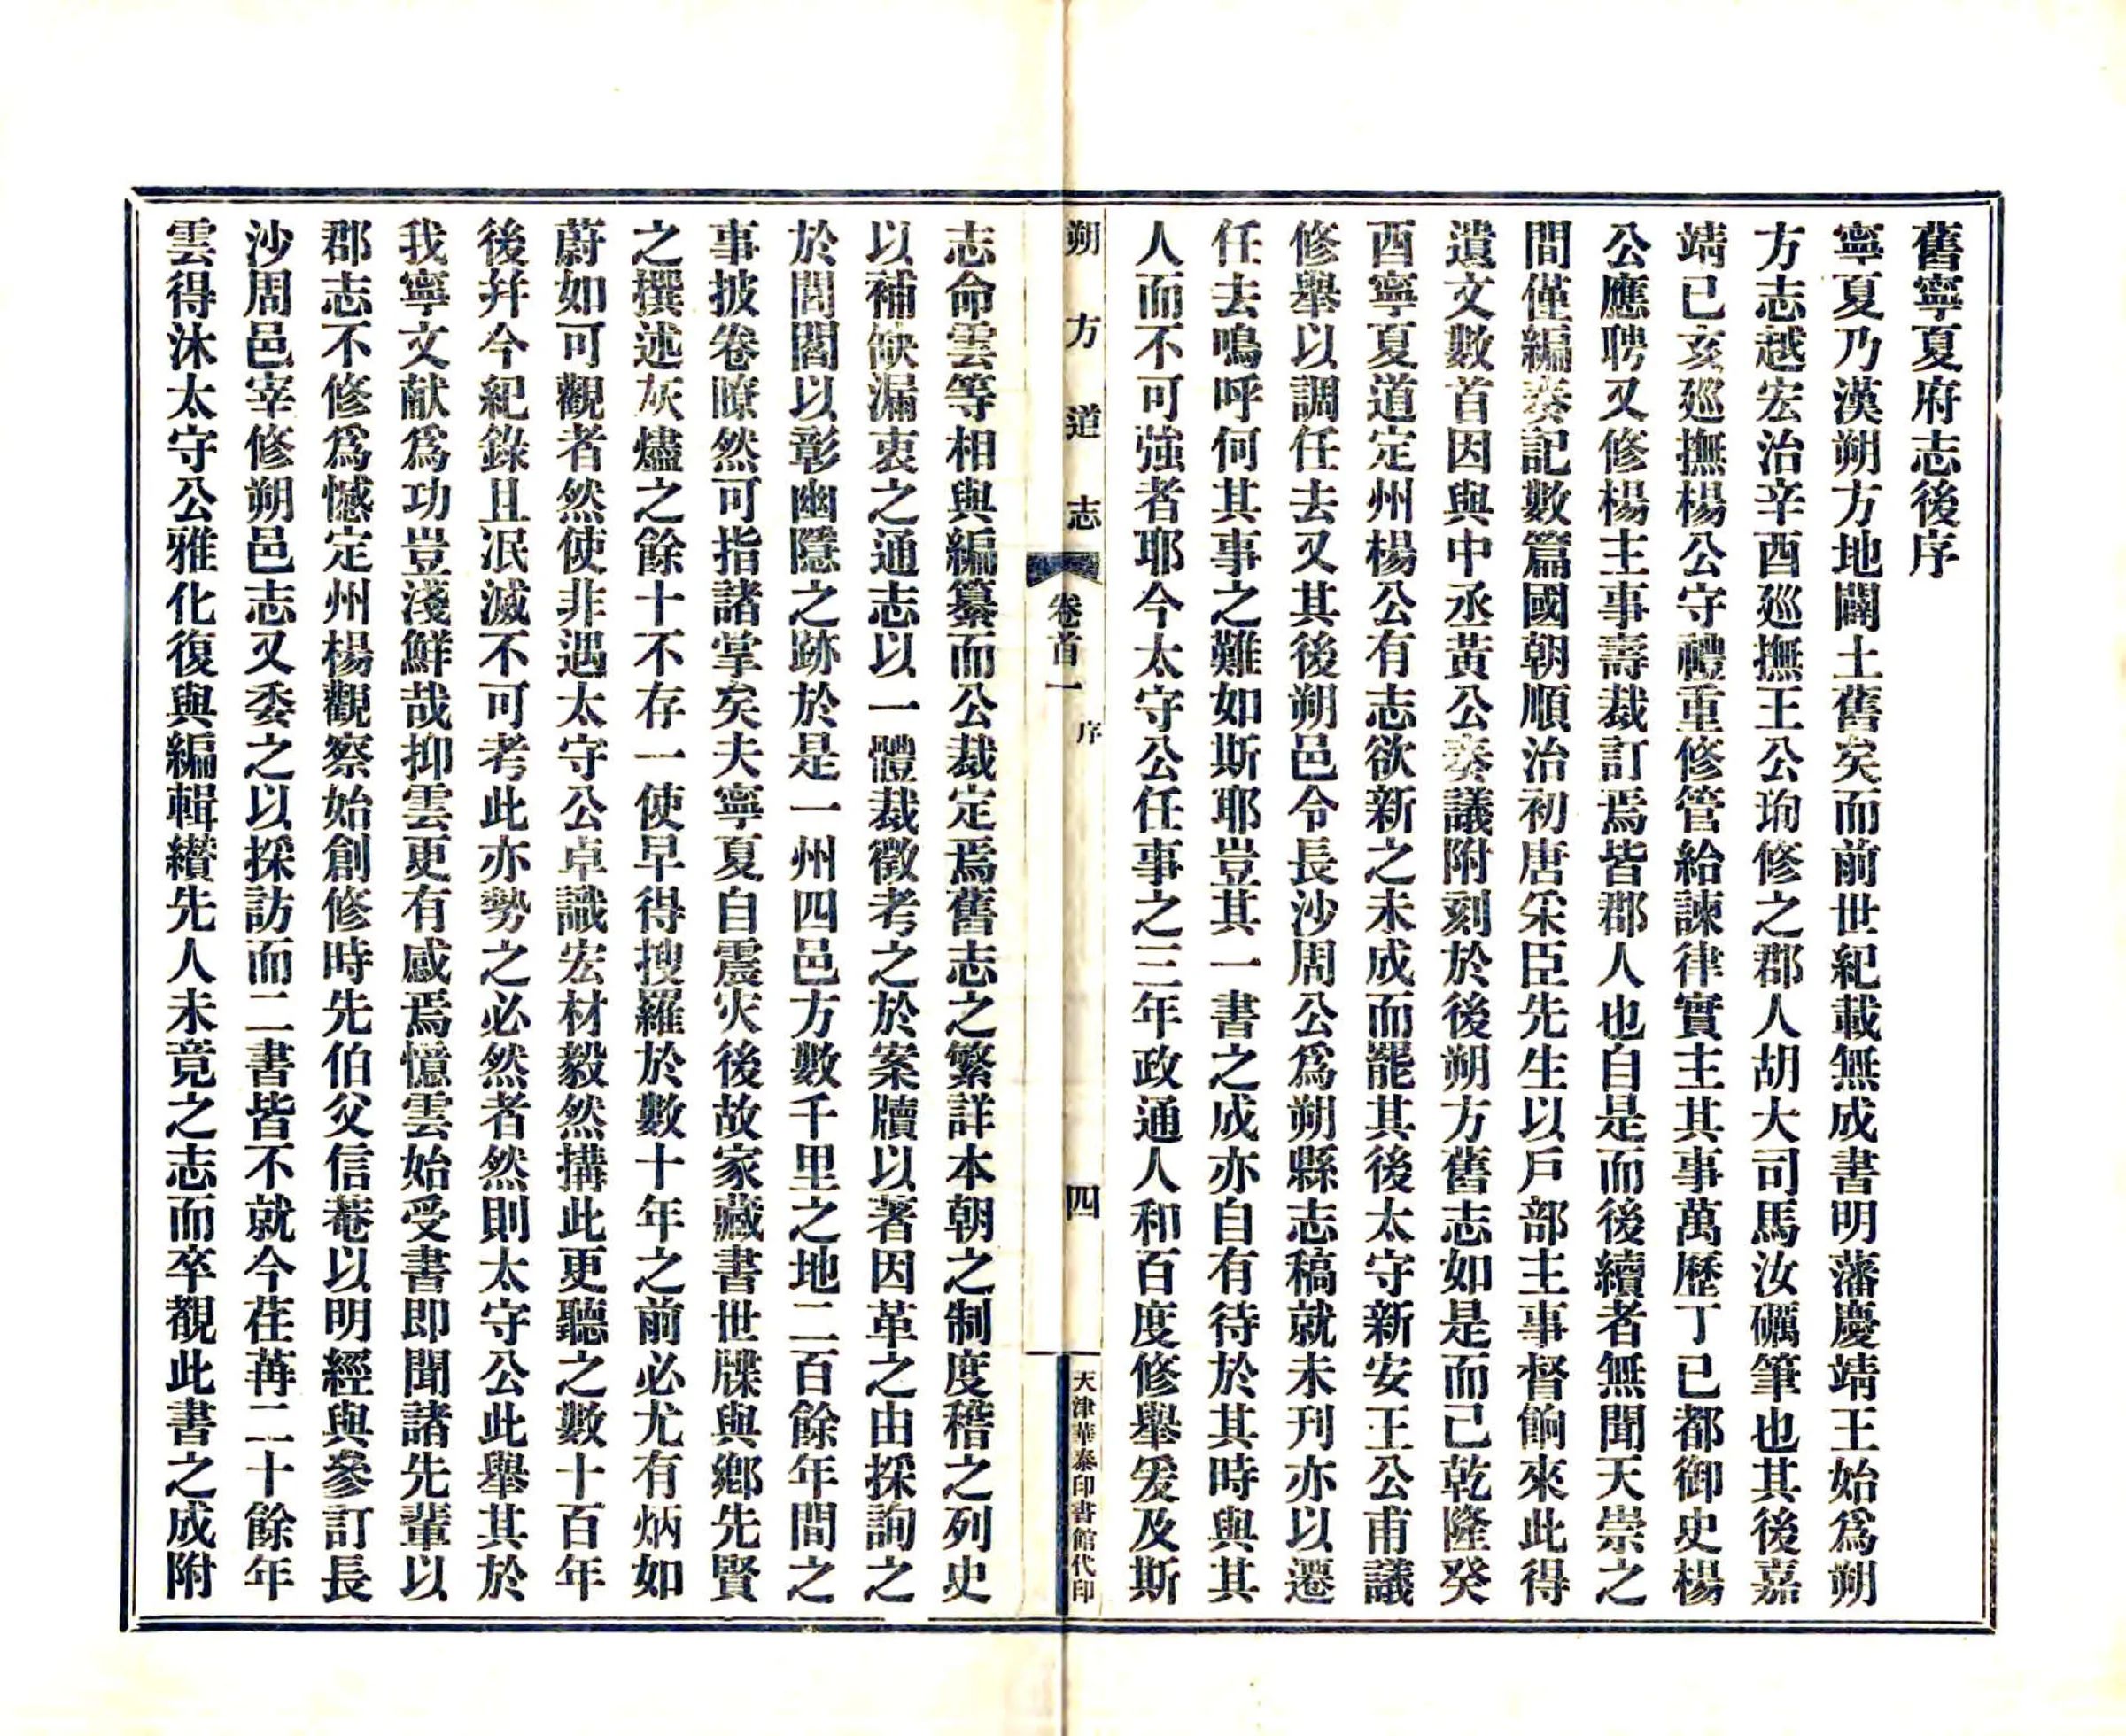 舊寧夏府志後序
寧夏乃漢朔方地闢土舊矣而前世紀載無成書明藩慶靖王始爲朔
方志越宏治辛酉廵撫王公珣修之郡人胡大司馬汝礪筆也其後嘉
靖己亥廵撫楊公守禮重修管給諫律實主其事萬歷丁已都御史楊
公應聘又修楊主事壽裁訂焉皆郡人也自是而後續者無聞天崇之
間僅編奏記數篇國朝順治初唐采臣先生以戶部主事督餉來此得
遺文數首因與中丞黃公奏議附刻於後朔方舊志如是而已乾隆癸
酉寧夏道定州楊公有志欲新之未成而罷其後太守新安王公甫議
修舉以調任去又其後朔邑令長沙周公爲朔縣志稿就未刊亦以遷
任去嗚呼何其事之難如斯耶豈其一書之成亦自有待於其時與其
人而不可強者耶今太守公任事之三年政通人和百度修舉爰及斯
朔方道志 卷首一 序 四 天津華泰印書館代印
志命雲等相與編纂而公裁定焉舊志之繁詳本朝之制度稽之列史
以補缺漏衷之通志以一體裁徵考之於案牘以著因革之由採詢之
於閭閻以彰幽隱之跡於是一州四邑方數千里之地二百餘年間之
事披卷瞭然可指諸掌矣夫寧夏自震灾後故家藏書世牒與鄉先賢
之撰述灰燼之餘十不存一使早得搜羅於數十年之前必尤有炳如
蔚如可觀者然使非遇太守公卓識宏材毅然搆此更聽之數十百年
後幷今紀錄且泯滅不可考此亦勢之必然者然則太守公此舉其於
我寧文献爲功豈淺鮮哉抑雲更有感焉憶雲始受書即聞諸先輩以
郡志不修爲憾定州楊觀察始創修時先伯父信菴以明經與參訂長
沙周邑宰修朔邑志又委之以採訪而二書皆不就今荏苒二十餘年
雲得沐太守公雅化復與編輯纘先人未竟之志而卒覩此書之成附